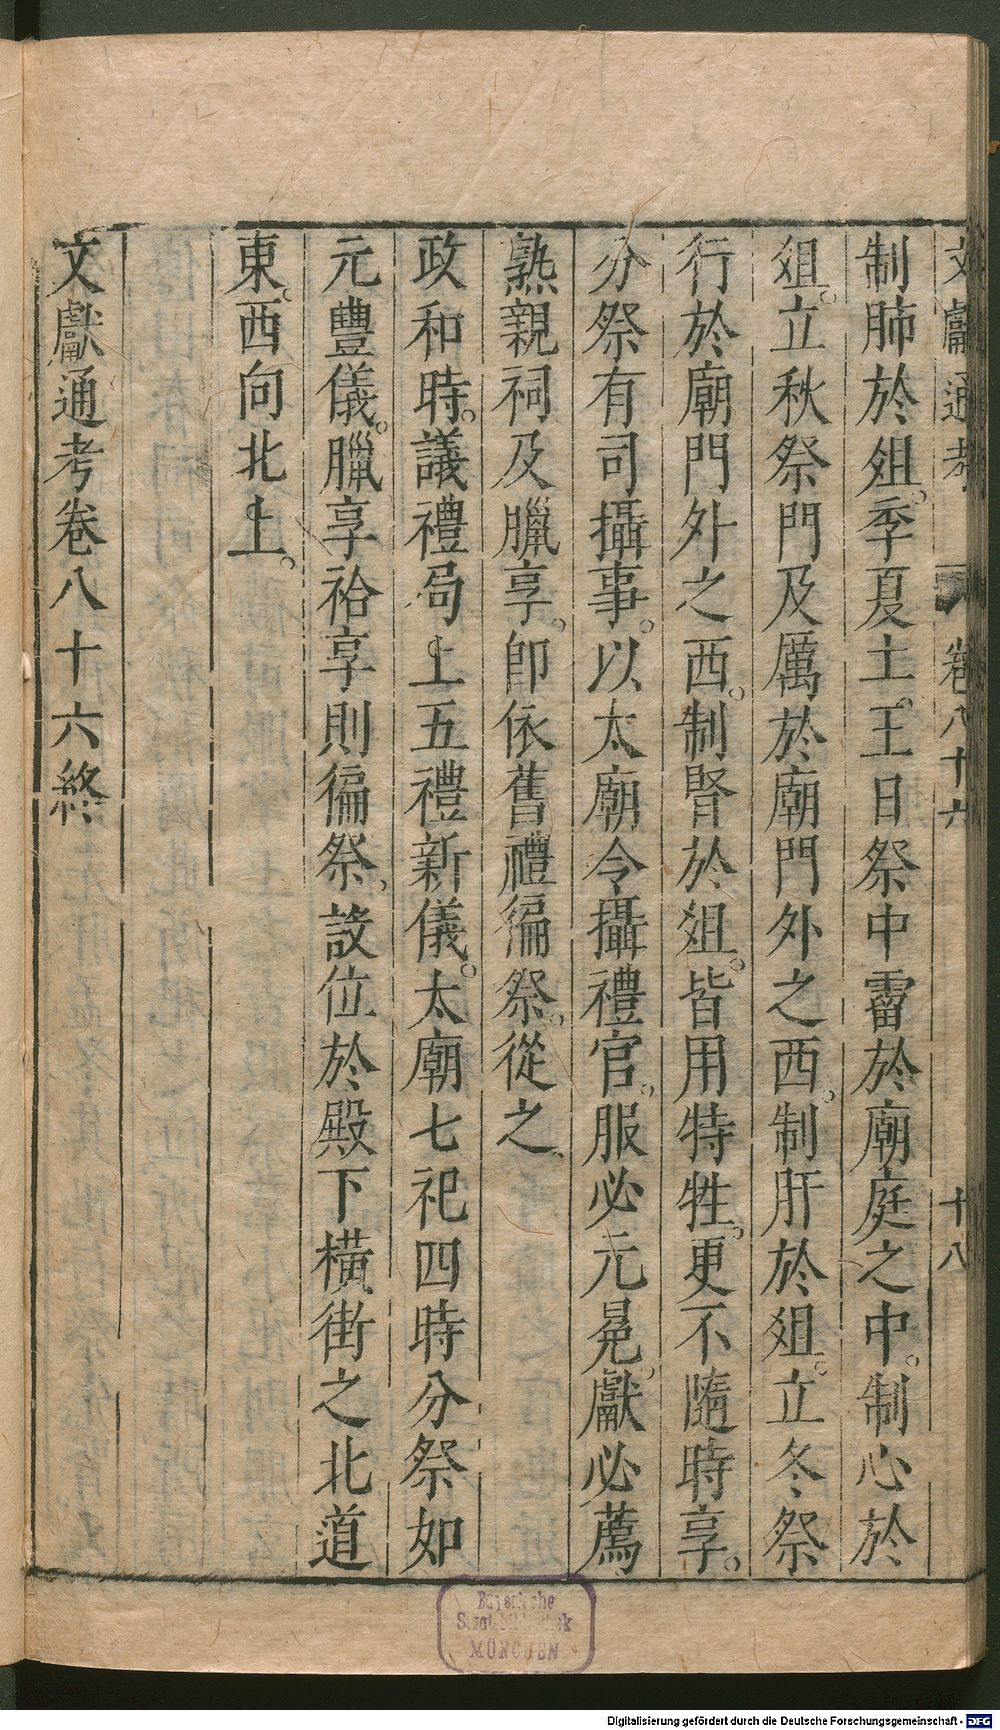 文獻通考 卷八十六 十八
制肺於俎。季夏土。王日祭中霤於廟庭之中。制心於
俎。立秋祭門及厲於廟門外之西。制肝於俎。立冬祭
行於廟門外之西。制腎於俎。皆用特牲。更不隨時享。
分祭有司攝事。以太廟令攝禮官。服必元冕。獻必薦
熟親祠及臘享。卽依舊禮徧祭。從之。
政和時。議禮局上五禮新儀。太廟七祀四時分祭如
元豐儀。臘享祫享則徧祭。設位於殿下橫街之北道
東。西向北上。
文獻通考卷八十六終
Bayerische
Staatsbibliothek
MÜNCHEN
Digitalisierung gefördert durch die Deutsche Forschungsgemeinschaft - DFG